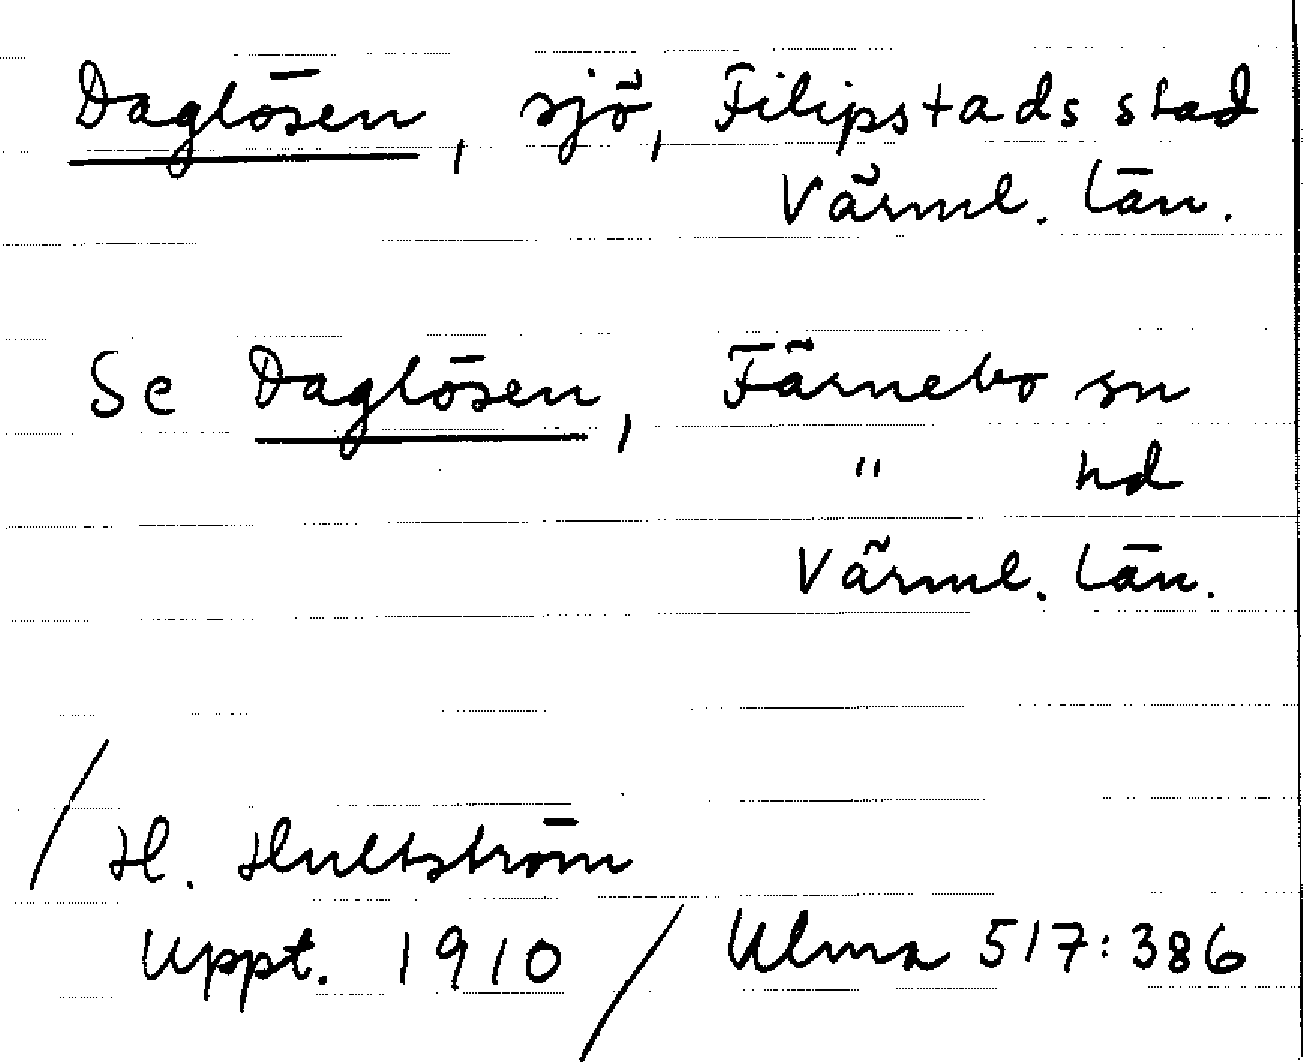 Daglösen, sjö, Filipstads stad
Värml. län.
Se Daglösen, Färnebo sn
" hd
Värml. län.
/ H. Hultström
Uppt. 1910 / Ulma 517:386